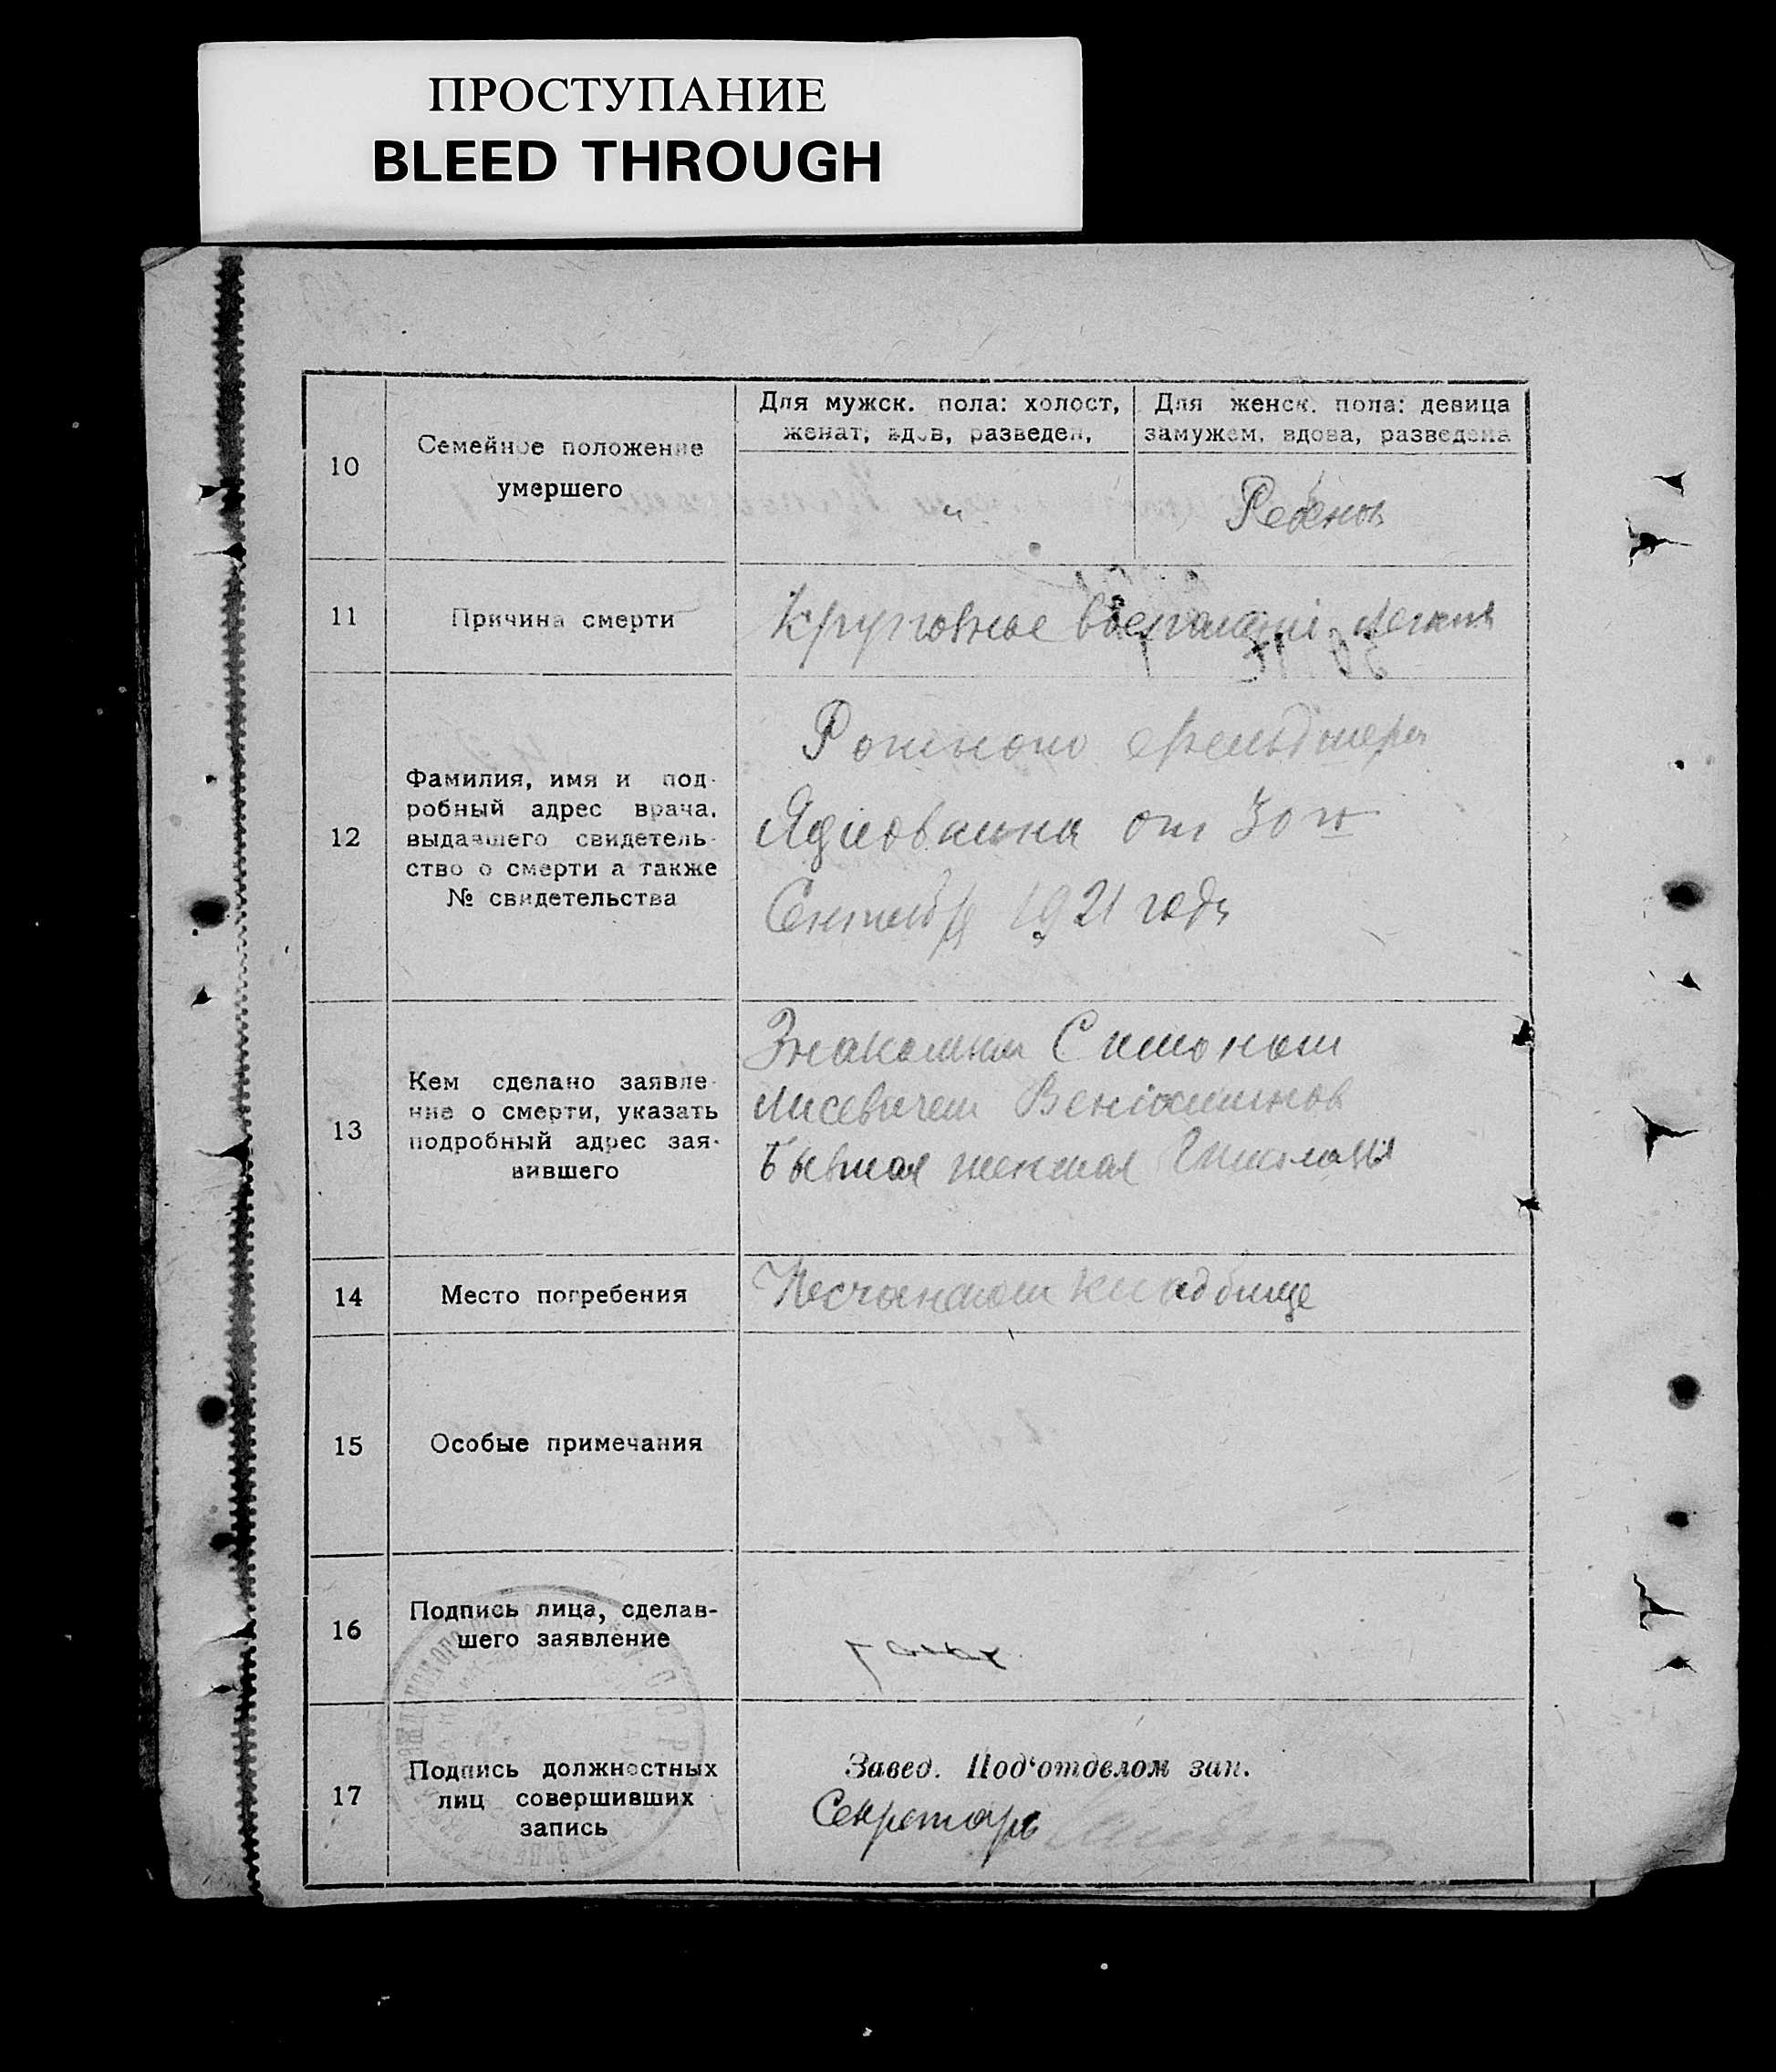 ПРОСТУПАНИЕ
BLEED THROUGH
10
Семейное положение
умершего
Для мужск. пола: холост,
женат, вдов, разведен,
"
Для женск. пола: девица
замужем, вдова, разведена
Ребенок
11
Причина смерти
Круповное воспаление легких
12
Фамилия, имя и под-
робный адрес врача,
выдавшего свидетель-
ство о смерти а также
№ свидетельства
Ротного фельдшера
от 30 го
Сентября 1921 года
13
Кем сделано заявле-
ние о смерти, указать
подробный адрес зая-
вившего
Знакомым Симоном
Бывшая женская Гимназия
14
Место погребения
Песчаном кладбище
15
Особые примечания
16
Подпись лица, сделав-
шего заявление
17
Подпись должностных
лиц совершивших
запись
Завед. Под'отделом зап.
Секретарь